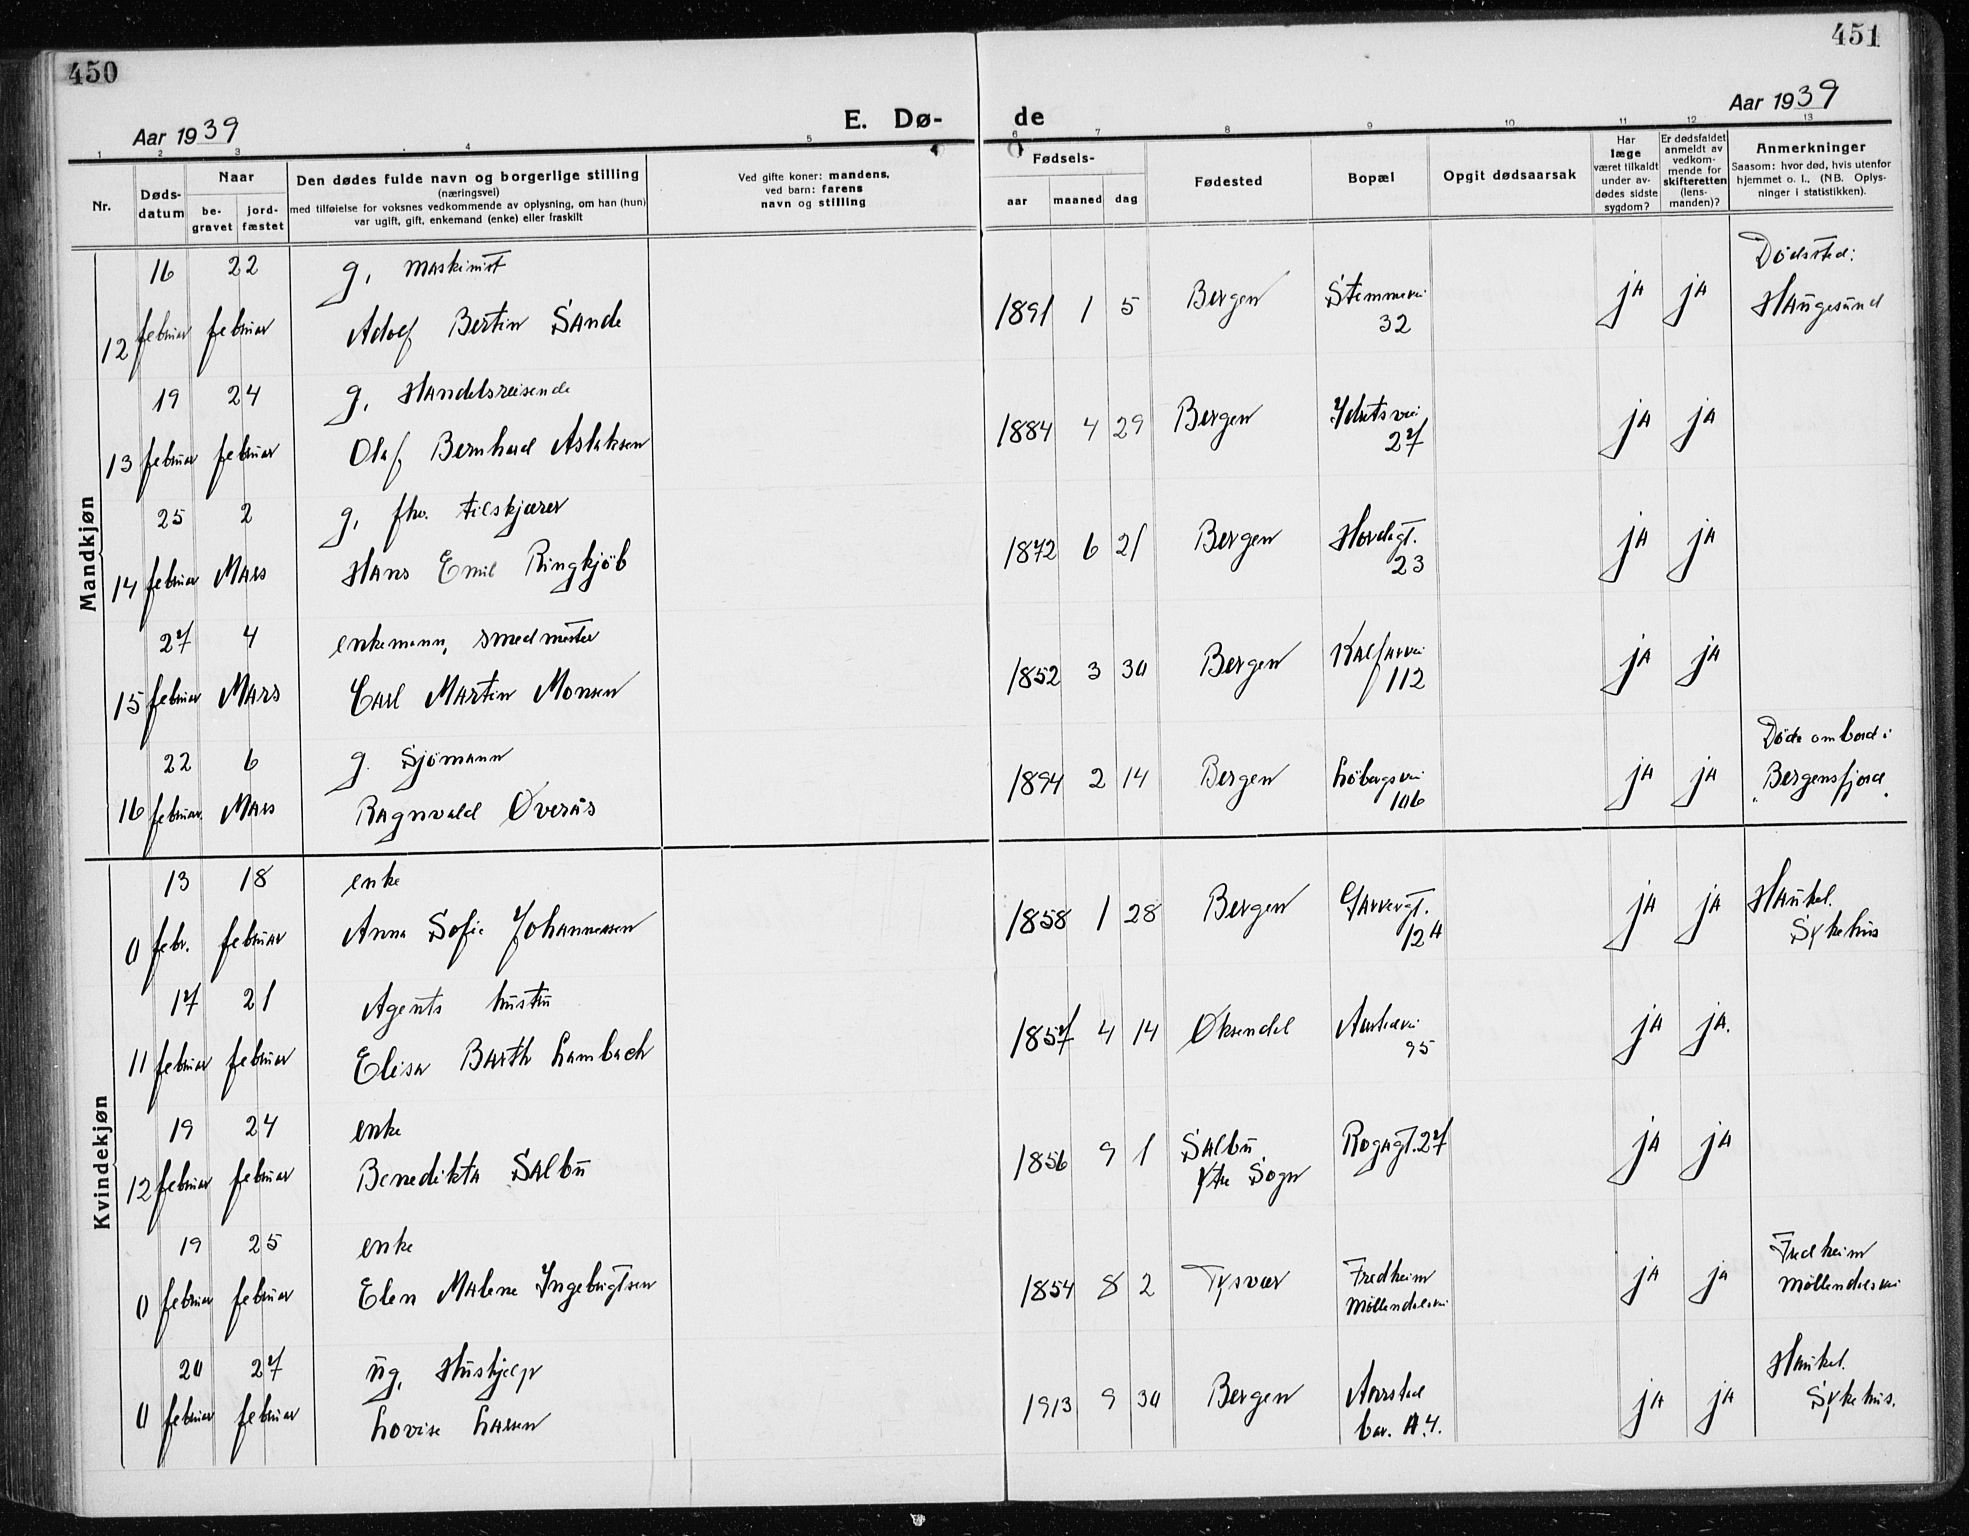 450
451
Aar 1939
E. Dø-
de
Aar 1939
1 2 3 4 5 6 7 8 9 10 11 12 13
Nr.
Døds-
datum
Naar
be-
gravet
jord-
fæstet
Den dødes fulde navn og borgerlige stilling
(næringsvei)
med tilføielse for voksnes vedkommende av oplysning, om han (hun)
var ugift, gift, enkemand (enke) eller fraskilt
Ved gifte koner: mandens,
ved barn: farens
navn og stilling
Fødsels-
aar maaned dag
Fødested
Bopæl
Opgit dødsaarsak
Har
læge
været tilkaldt
under av-
dødes sidste
sygdom?
Er dødsfaldet
anmeldt av
vedkom-
mende for
skifteretten
(lens-
manden)?
Anmerkninger
Saasom: hvor død, hvis utenfor
hjemmet o. l., (NB. Oplys-
ninger i statistikken).
Mandkjøn
16 22 g, maskinist Dødsted:
12 februar februar Adolf Bertin Sande 1891 1 5 Bergen Stemmevei 32 ja ja Haugesund
19 24 g, Handelsreisende
13 februar februar Olaf Bernhard Aslaksen 1884 4 29 Bergen Idrætsvei 27 ja ja
25 2 g, fhv. tilskjærer
14 februar Mars Hans Emil Ringkjöb 1872 6 21 Bergen Hordagt. 23 ja ja
27 4 enkemann, smedmester
15 februar Mars Carl Martin Monsen 1852 3 30 Bergen Kalfarvei 112 ja ja
22 6 g. Sjömann Døde ombord i
16 februar Mars Ragnvald Øverås 1894 2 14 Bergen Löbergsvei 106 ja ja "Bergensfjord"
Kvindekjøn
13 18 enke
0 febr. februar Anna Sofie Johannessen 1858 1 28 Bergen Garvergt. 12 A ja ja Haukel. Sykehus
17 21 Agents hustru
11 februar februar Elisa Barth Lambach 1857 4 14 Øksendal Aarstadvei 95 ja ja.
19 24 enke
12 februar februar Benedikta Salbu 1856 9 1 Salbu Ytre Sogn Rogagt. 27 ja ja
19 25 enke
0 februar februar Elen Malene Ingebrigtsen 1854 8 2 Tysvær Fredheim Møllendalsvei ja ja Fredheim Møllendalsvei
20 27 ug, Hushjelp
0 februar februar Lovise Larsen 1913 9 30 Bergen Aarstad bar. A.4. ja ja Haukel. Sykehus.